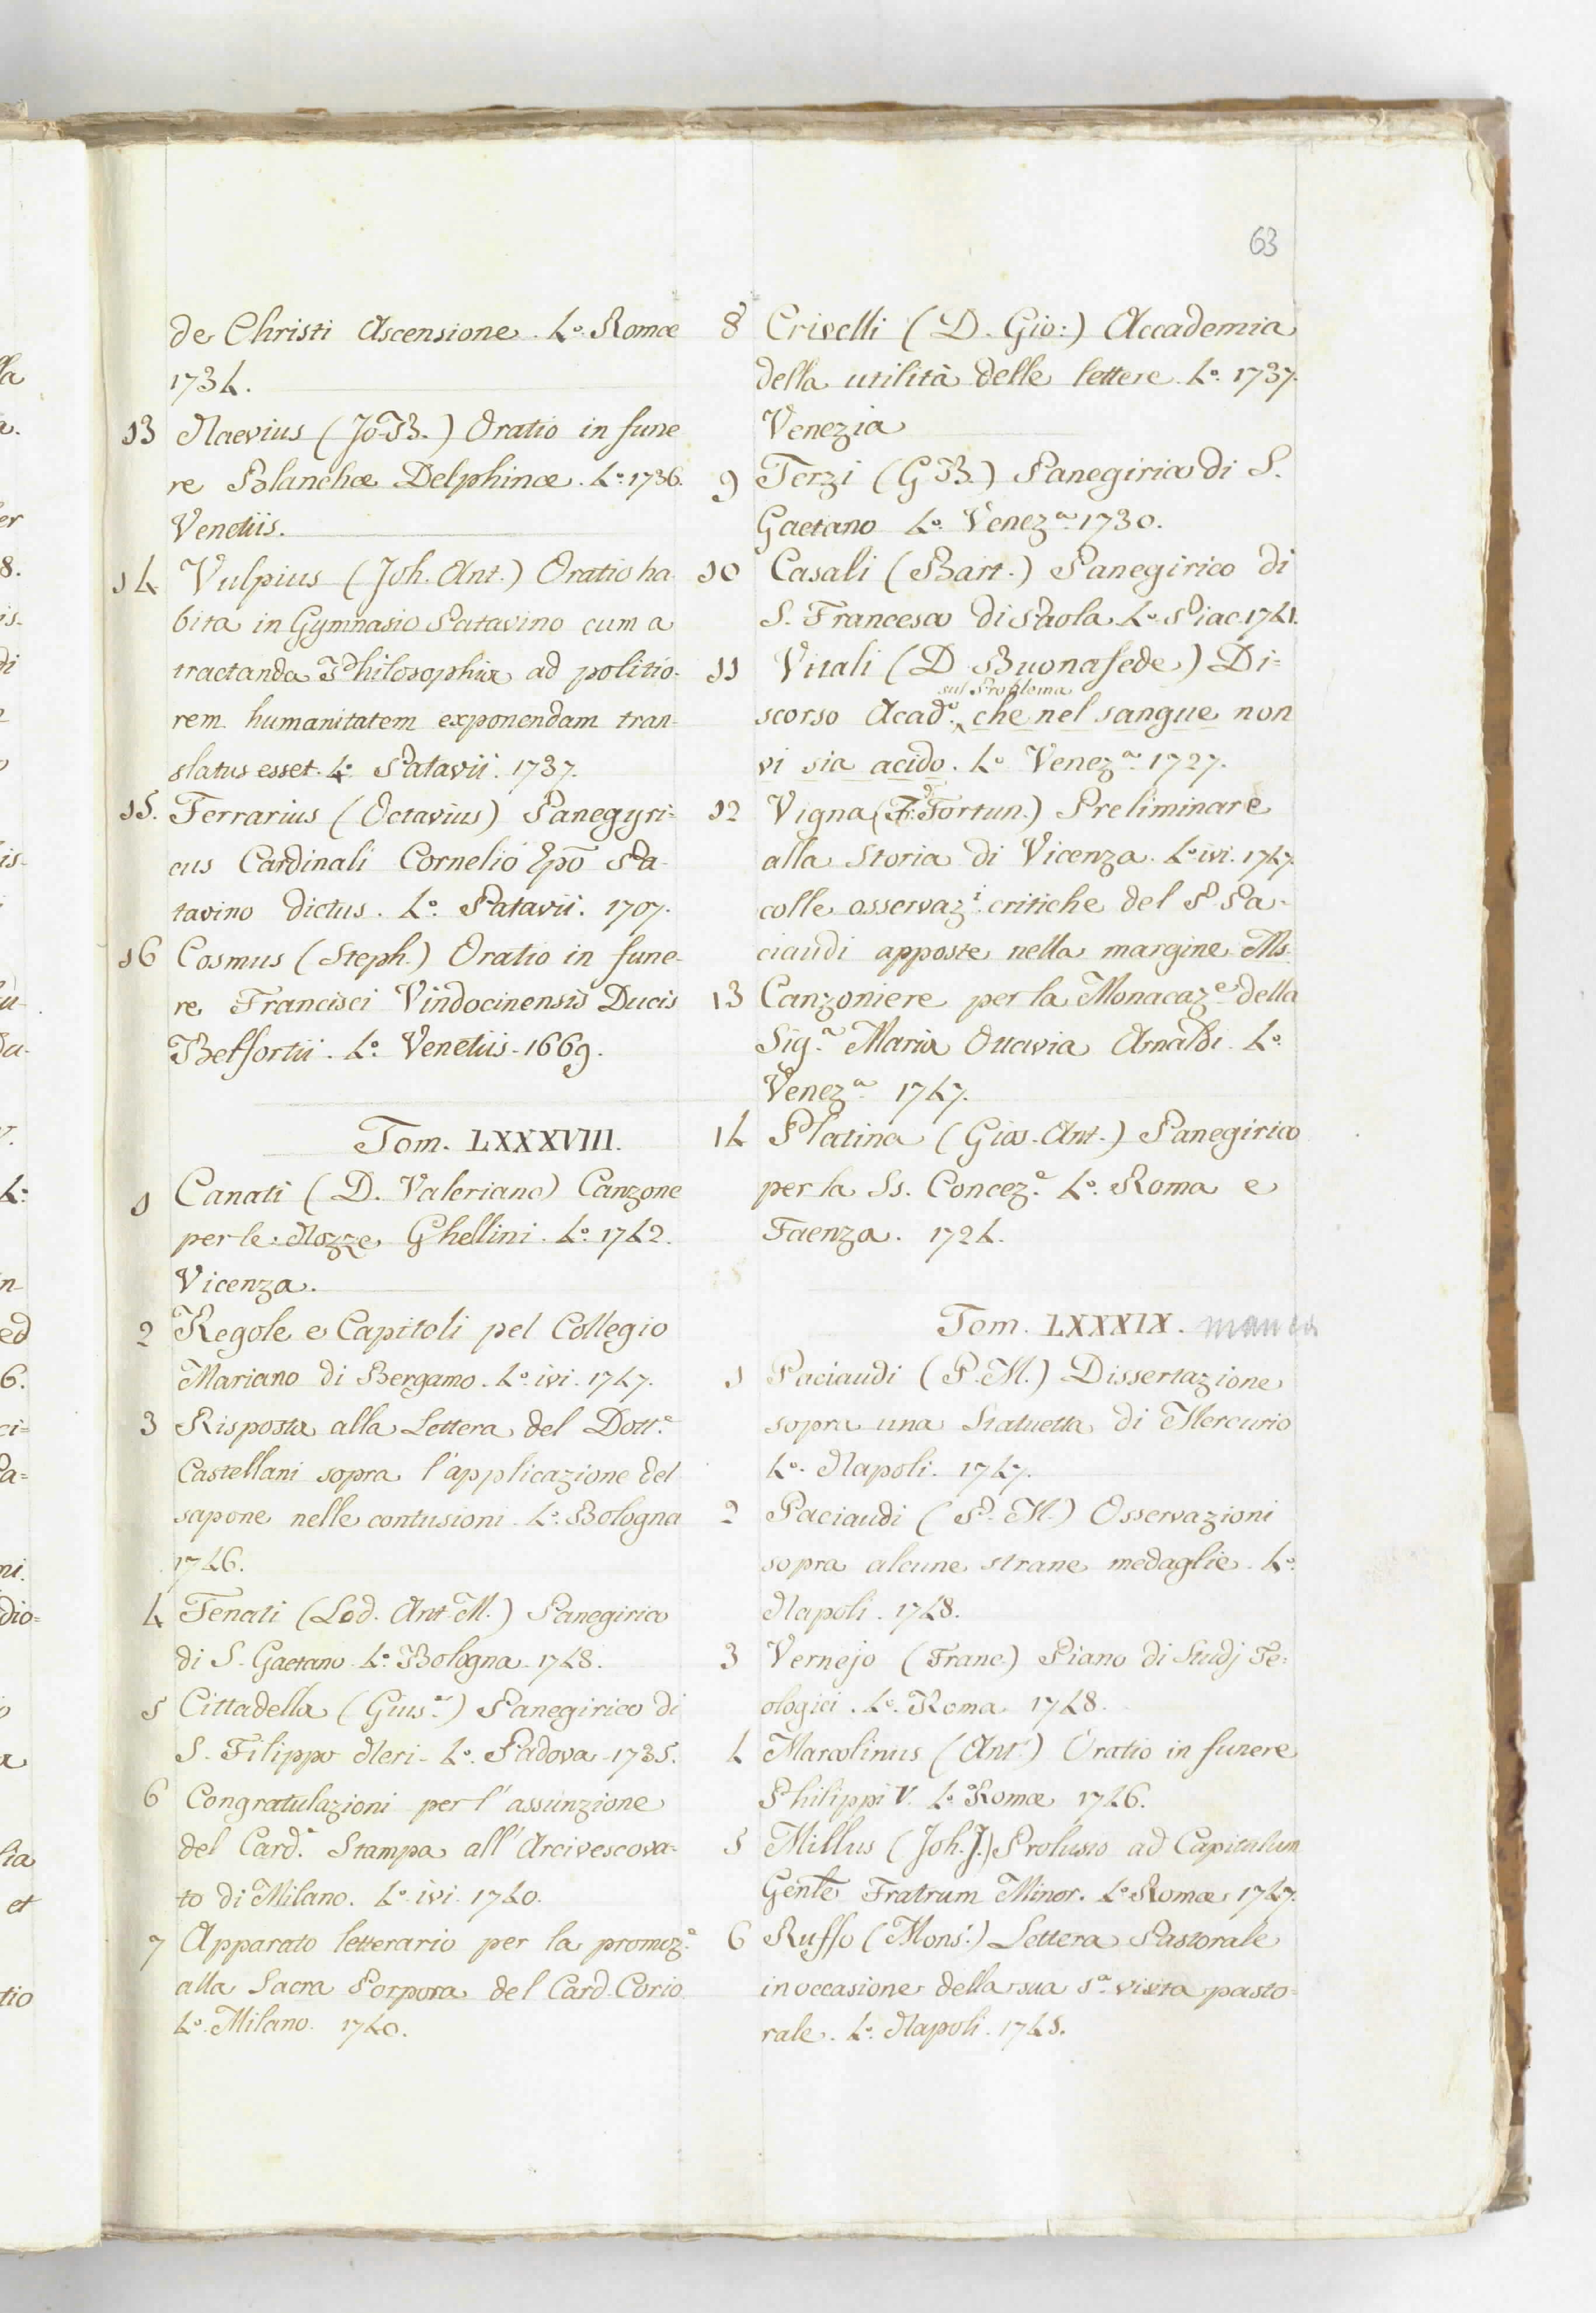 63
de Christi Ascensione. 4.º Romæ
1734.
13 Naevius (Jo. B.) Oratio in fune
re Blanchæ Delphinæ. 4.º 1736.
Venetiis.
14 Vulpius (Joh. Ant.) Oratio ha
bita in Gymnasio Patavino cum a
tractanda Philosophia ad politio-
rem humanitatem exponendam tran-
slatus esset. 4.º Patavii. 1737.
15. Ferrarius (Octavius) Panegyri=
cus Cardinali Cornelio Epō Pa-
tavino dictus. 4.º Patavii. 1707.
16 Cosmus (Steph.) Oratio in fune-
re Francisci Vindocinensis Ducis
Belfortii. 4.º Venetiis. 1669.
Tom. LXXXVIII.
1 Canati (D. Valeriano) Canzone
per le Nozze Ghellini. 4.º 1742.
Vicenza.
2 Regole e Capitoli pel Collegio
Mariano di Bergamo. 4.º ivi. 1747.
3 Risposta alla Lettera del Dott.e
Castellani sopra l'applicazione del
sapone nelle contusioni. 4.º Bologna
1746.
4 Tenati (Lod. Ant. M.) Panegirico
di S. Gaetano. 4.º Bologna. 1748.
5 Cittadella (Gius.e) Panegirico di
S. Filippo Neri. 4.º Padova. 1735.
6 Congratulazioni per l'assunzione
del Card.e Stampa all'Arcivescova-
to di Milano. 4.º ivi. 1740.
7 Apparato letterario per la promoz.e
alla Sacra Porpora del Card. Corio
4.º Milano. 1740.
8 Crivelli (D. Gio:) Accademia
della utilità delle lettere. 4.º 1737.
Venezia
9 Terzi (G B.) Panegirico di S.
Gaetano 4.º Venez.a 1730.
10 Casali (Bart.) Panegirico di
S. Francesco di Paola. 4.º Piac. 1741.
11 Vitali (D. Buonafede) Di=
sul Problema
scorso Acad.º che nel sangue non
vi sia acido. 4.º Venez.a 1727.
12 Vigna (F. Fortun.) Preliminare
alla Storia di Vicenza. 4.º ivi. 1747.
colle osservaz.i critiche del P. Pa-
ciaudi apposte nella margine Ms.
13 Canzoniere per la Monacaz.e della
Sig.a Maria Ottavia Arnaldi. 4.º
Venez.a 1747.
14 Platina (Gios. Ant.) Panegirico
per la Ss. Concez.e 4.º Roma e
Faenza. 1724.
Tom. LXXXIX. manca
1 Paciaudi (P. M.) Dissertazione
sopra una Statuetta di Mercurio
4.º Napoli. 1747.
2 Paciaudi (P. M.) Osservazioni
sopra alcune strane medaglie. 4.º
Napoli. 1748.
3 Vernejo (Franc.) Piano di Studj Te=
ologici. 4.º Roma 1748.
4 Marcolinus (Ant.) Oratio in funere
Philippi V. 4.º Romæ 1746.
5 Millus (Joh. J.) Prolusio ad Capitulum
Genlē Fratrum Minor. 4.º Romæ 1747.
6 Ruffo (Mons.r) Lettera Pastorale
in occasione della sua S.a visita pasto=
rale. 4.º Napoli. 1745.